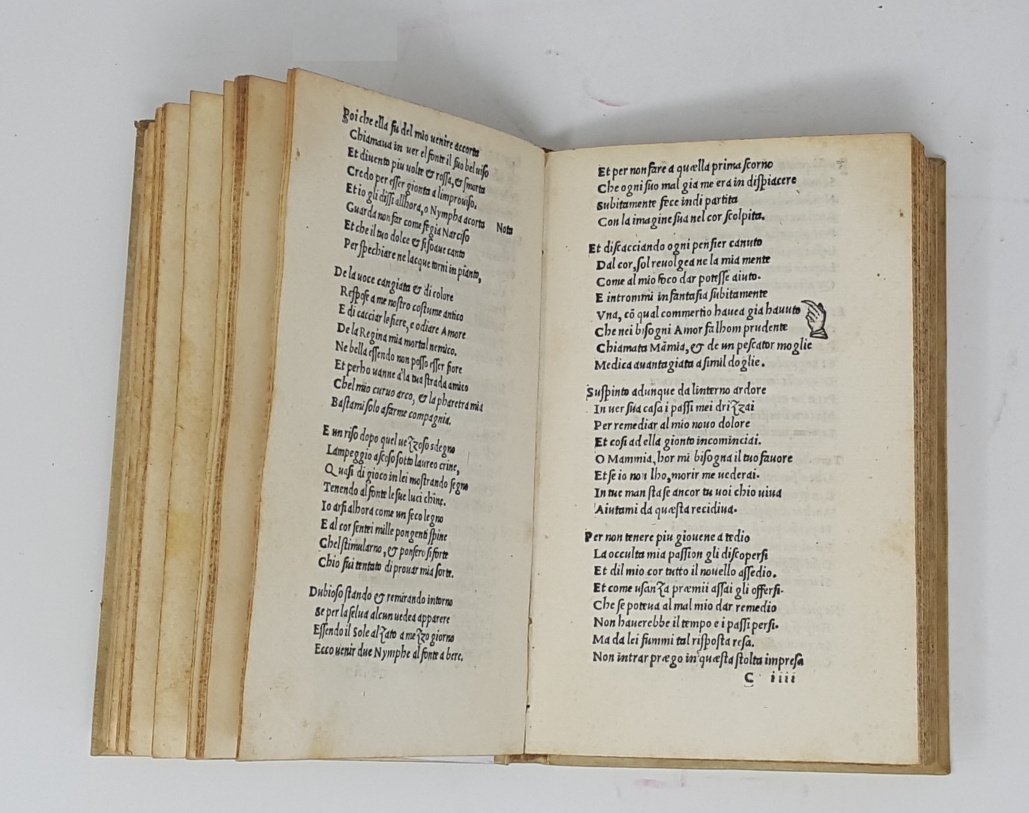 Poi che ella fu del mio venire accorta
Chiamaua in ver el fonte il suo bel uiso
Et diuento piu uolte & rossa, & smorta
Credo per esser gionta a limprouiso.
Et io gli dissi allhora, o Nympha acorta Nota
Guarda non far come fe gia Narciso
Et che il tuo dolce & si soaue canto
Per spechiare ne lacque torni in pianto,
De la uoce cangiata & di colore
Respose a me nostro costume antico
E di cacciar le fiere, e odiare Amore
De la Regina mia mortal nemico.
Ne bella essendo non posso esser fiore
Et perho uanne a la tua strada amico
Chel mio curuo arco, & la pharetra mia
Bastami solo a farme compagnia.
E un riso dopo quel uezzoso sdegno
Lampeggio ascoso sotto laureo crine,
Quasi di gioco in lei mostrando segno
Tenendo al fonte le sue luci chine.
Io arsi alhora come un seco legno
E al cor sentei mille pongenti spine
Chel stimularno, & ponsero si forte
Chio fui tentato di prouar mia sorte.
Dubioso stando & remirando intorno
Se per la selua alcun uedea apparere
Essendo il Sole alzato a mezo giorno
Ecco uenir due Nymphe al fonte a bere.
Et per non fare a quælla prima scorno
Che ogni suo mal gia me era in dispiacere
Subitamente fece indi partita
Con la imagine sua nel cor scolpita.
Et discacciando ogni pensier canuto
Dal cor, sol reuolgea ne la mia mente
Come al mio foco dar potesse aiuto.
E introm̃i in fantasia subitamente
Vna, cõ qual commertio hauea gia hauuto
Che nei bisogni Amor fa lhom prudente
Chiamata Mãmia, & de un pescator moglie
Medica auantagiata a simil doglie.
Suspinto adunque da linterno ardore
In uer sua casa i passi mei drizzai
Per remediar al mio nouo dolore
Et cosi ad ella gionto incominciai.
O Mammia, hor mi bisogna il tuo fauore
Et se io non lho, morir me uederai.
In tue man sta se ancor tu uoi chio uiua
Aiutami da quæsta recidiua.
Per non tenere piu giouene a tedio
La occulta mia passion gli discopersi
Et dil mio cor tutto il nouello assedio.
Et come usanza præmii assai gli offersi.
Che se poteua al mal mio dar remedio
Non hauerebbe il tempo e i passi persi.
Ma da lei fummi tal risposta resa.
Non intrar prægo in quæsta stolta impresa
C iiii